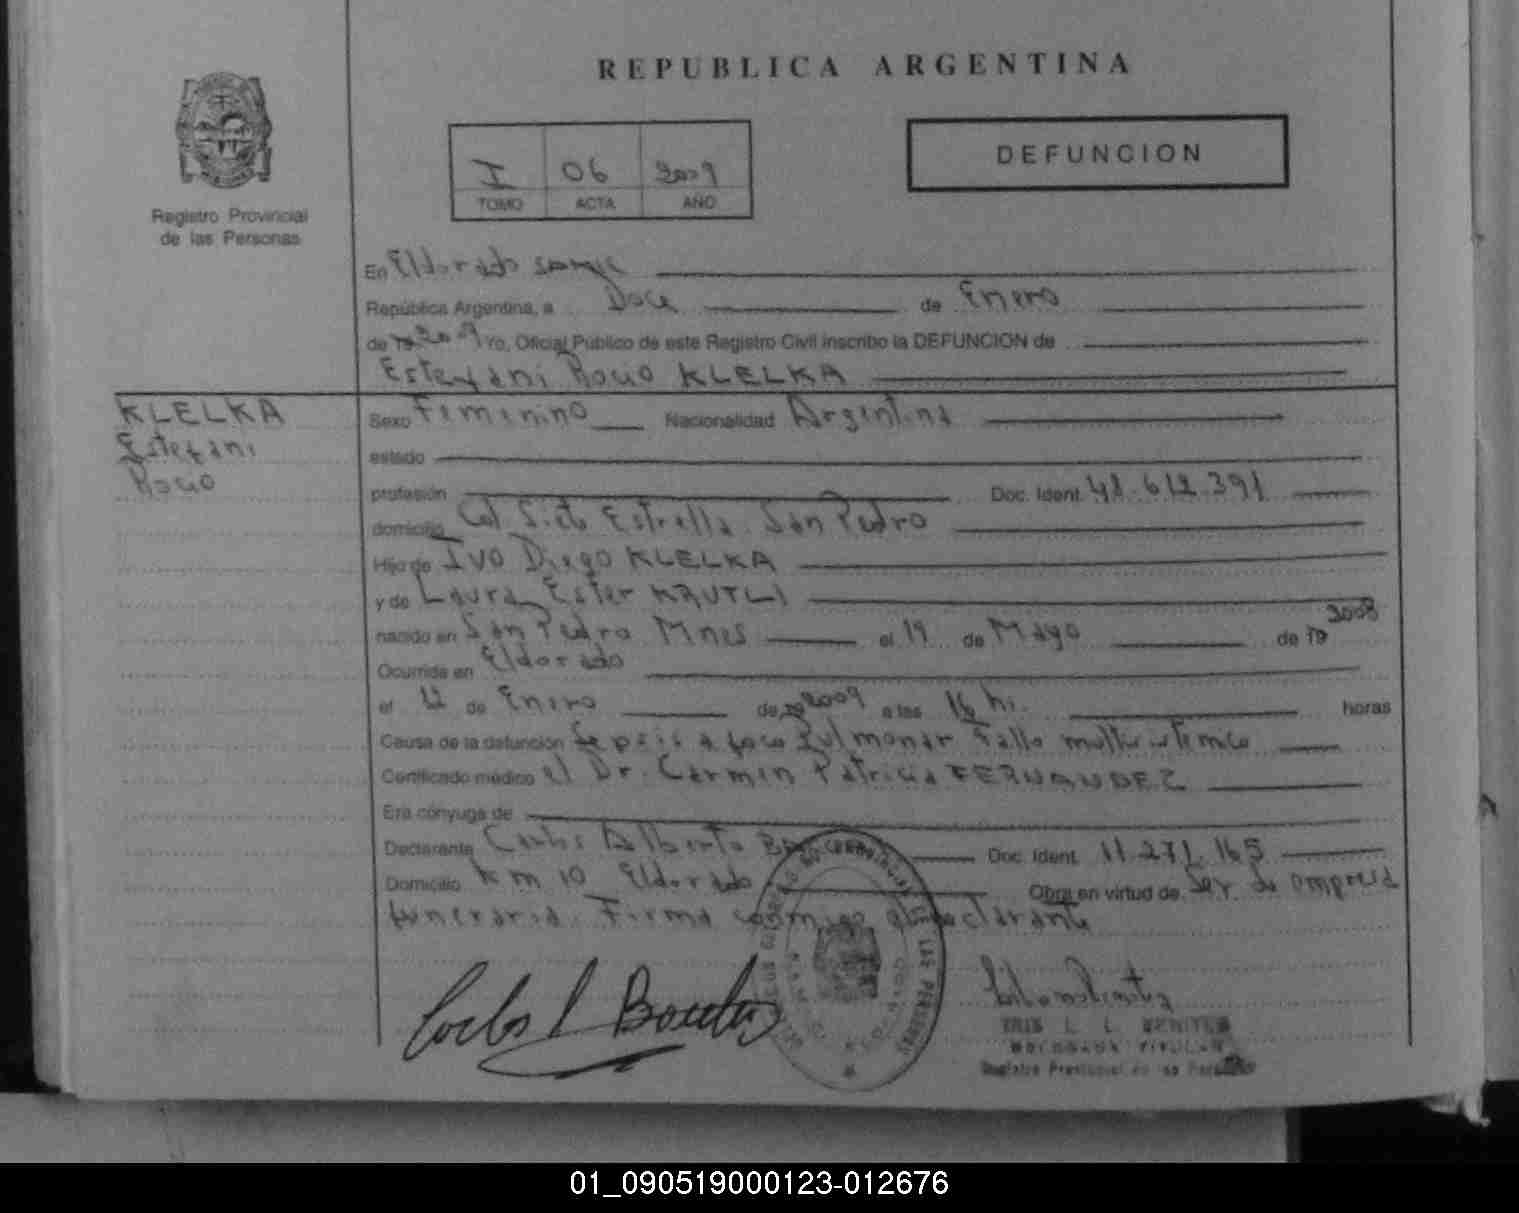 REPUBLICA ARGENTINA
I 06 2009
TOMO ACTA AÑO
DEFUNCION
Registro Provincial
de las Personas
En Eldorado
República Argentina, a Doce de Enero
de 2009 Yo, Oficial Público de este Registro Civil inscribo la DEFUNCION de
Estefani Rocio KLELKA
KLELKA
Estefani
Rocio
Sexo Femenino Nacionalidad Argentina
estado
profesión Doc. Ident. 48.612.391
domicilio Col. Siete Estrella San Pedro
Hijo de Ivo Diego KLELKA
y de Laura Ester KRUTLI
nacido en San Pedro Mnes el 19 de Mayo de 19 2008
Ocurrida en Eldorado
el 12 de Enero de 2009 a las 16 hs. horas
Causa de la defunción Sepsis a foco Pulmonar Fallo multisistemico
Certificado médico el Dr. Carmen Patricia FERNANDEZ
Era cónyuge de
Declarante Carlos Alberto Doc. Ident. 11.271.165
Domicilio Km 10 Eldorado Obra en virtud de Ser de empresa
funeraria. Firma conmigo el declarante
LAS PERSONAS
IRIS L. L. BENITEZ
DELEGADA TITULAR
Registro Provincial de las Personas
01_090519000123-012676